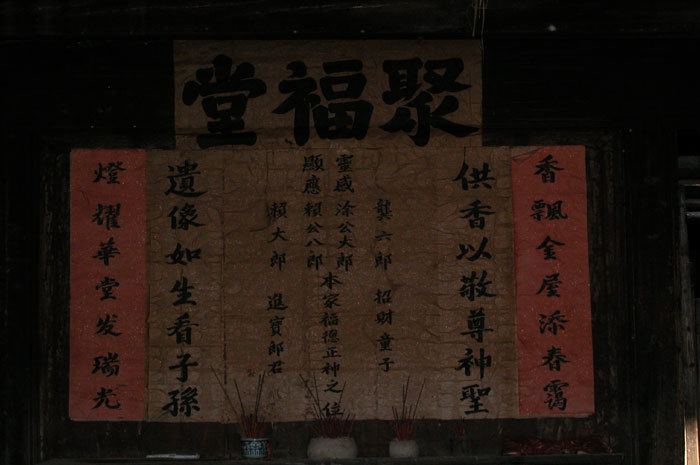 聚福堂
香飄金屋添春靄
供香以敬尊神聖
龔六郎 招財童子
靈感 涂公大郎
顯應 賴公八郎
本家福德正神之位
賴大郎 進寶郎君
遺像如生看子孫
燈耀華堂发瑞光